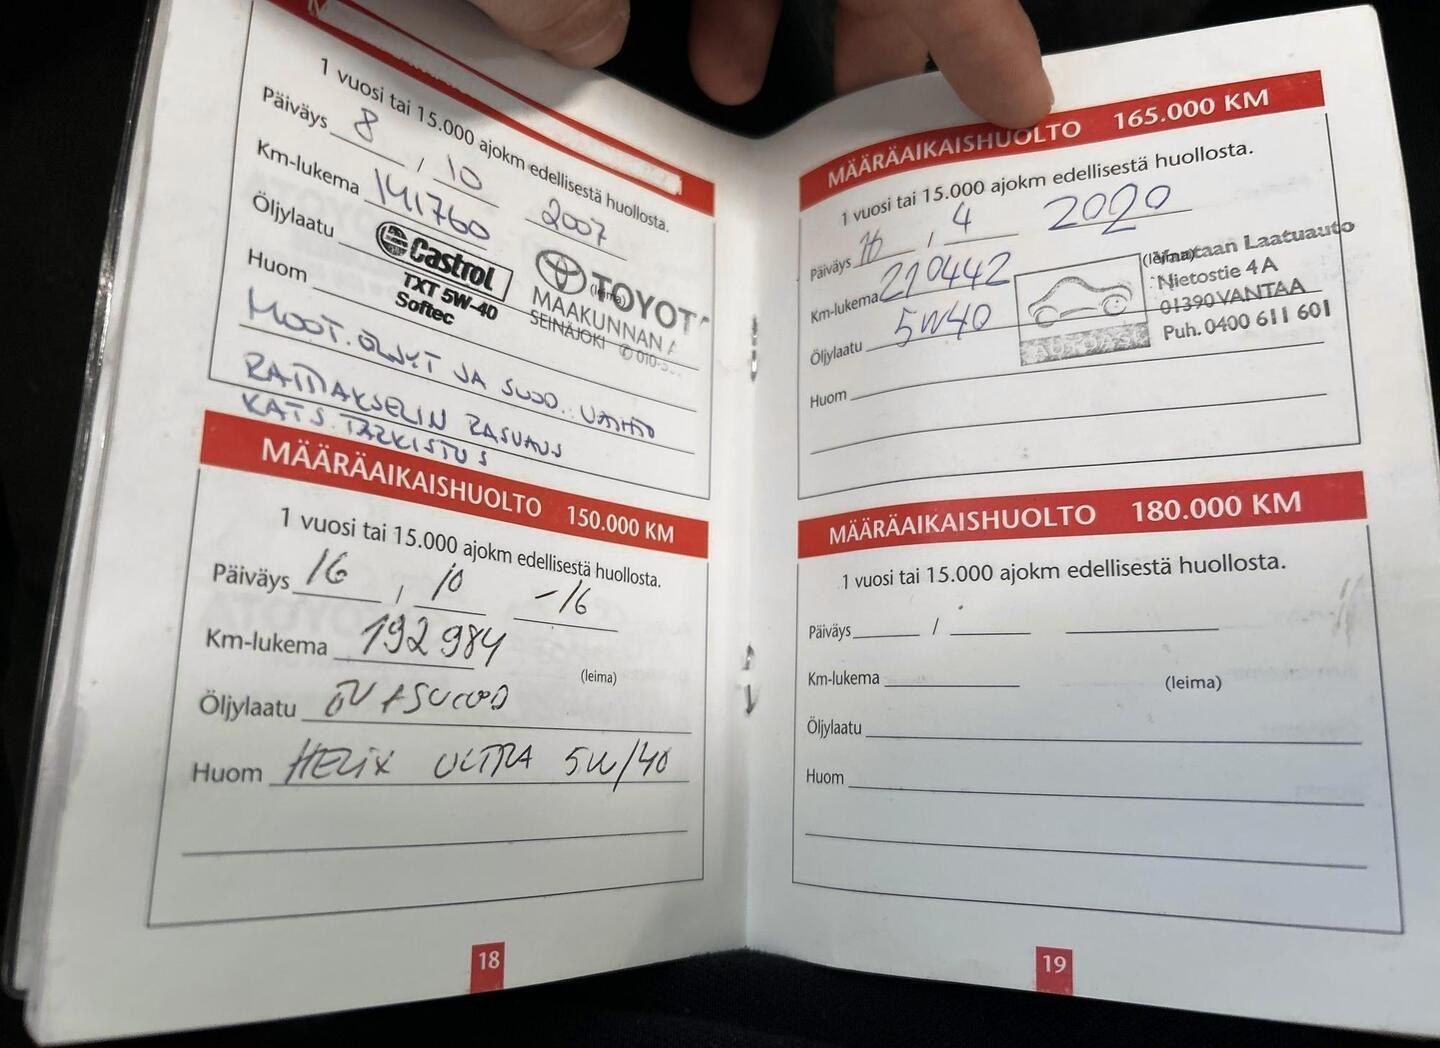 1 vuosi tai 15.000 ajokm edellisestä huollosta.
Päiväys 8 / 10 2007
Km-lukema 141760
Öljylaatu Castrol
TXT 5W-40
Softec
(leima)
TOYOT
MAAKUNNAN A
SEINÄJOKI ✆ 010-5
Huom
MOOT.ÖLJYT JA SUOD. VAIHTO
RATTAKSELIN RASVAUS
KATS. TARKISTUS
MÄÄRÄAIKAISHUOLTO 150.000 KM
1 vuosi tai 15.000 ajokm edellisestä huollosta.
Päiväys 16 / 10 -16
Km-lukema 192984
(leima)
Öljylaatu
Huom HELIX ULTRA 5W/40
18
MÄÄRÄAIKAISHUOLTO 165.000 KM
1 vuosi tai 15.000 ajokm edellisestä huollosta.
Päiväys 16 / 4 2020
Km-lukema 210442
Öljylaatu 5W40
(leima)
Vantaan Laatuauto
Nietostie 4 A
01390 VANTAA
Puh. 0400 611 601
Huom
MÄÄRÄAIKAISHUOLTO 180.000 KM
1 vuosi tai 15.000 ajokm edellisestä huollosta.
Päiväys /
Km-lukema
(leima)
Öljylaatu
Huom
19